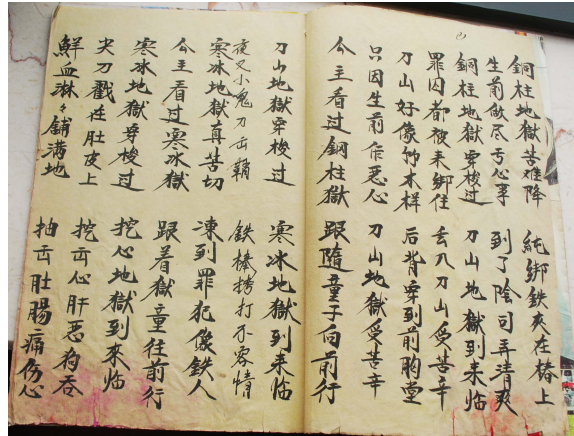 銅柱地獄苦难降 純绑鉄夹在椿上
生前做尽亏心事 到了陰司弄清爽
銅柱地獄穿梭过 刀山地獄到来临
罪囚都被来绑住 丢入刀山受苦辛
刀山好像竹木样 后背穿到前胸堂
只因生前作恶心 刀山地獄受苦辛
今主看过銅柱獄 跟隨童子向前行
刀山地獄穿梭过 寒冰地獄到来临
夜叉小鬼刀出鞘 鉄棒拷打不容情
寒冰地獄真苦切 凍到罪犯像鉄人
今主看过寒冰獄 跟着獄童往前行
寒冰地獄穿梭过 挖心地獄到來临
尖刀戳在肚皮上 挖出心肝恶狗吞
鮮血淋々舖满地 抽出肚腸痛伤心